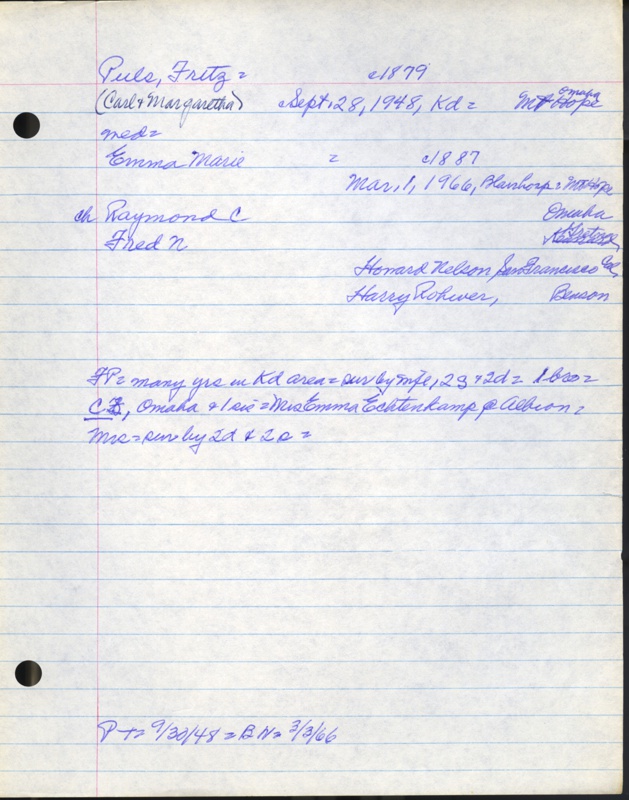 Puls, Fritz = c1879
(Carl & Margaretha) Sept. 28, 1948, Kd = Omaha Mt Hope
med =
Emma Marie = c1887
Mar, 1, 1966, Blairhosp = Mt Hope
ch Raymond C Omaha
Fred N
Howard Nelson San Francisco Cal,
Harry Rohwer, Benson
FP = many yrs in Kd area = sur by wife, 2s & 2d = 1 bro =
C , Omaha & 1 sis = Mrs Emma Echtenkamp @ Albion =
Mrs = sur by 2d & 2s =
P-t = 9/30/48 = BN = 3/3/66